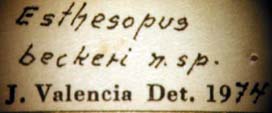 Esthesopus
beckeri n.sp.
J. Valencia Det. 1974